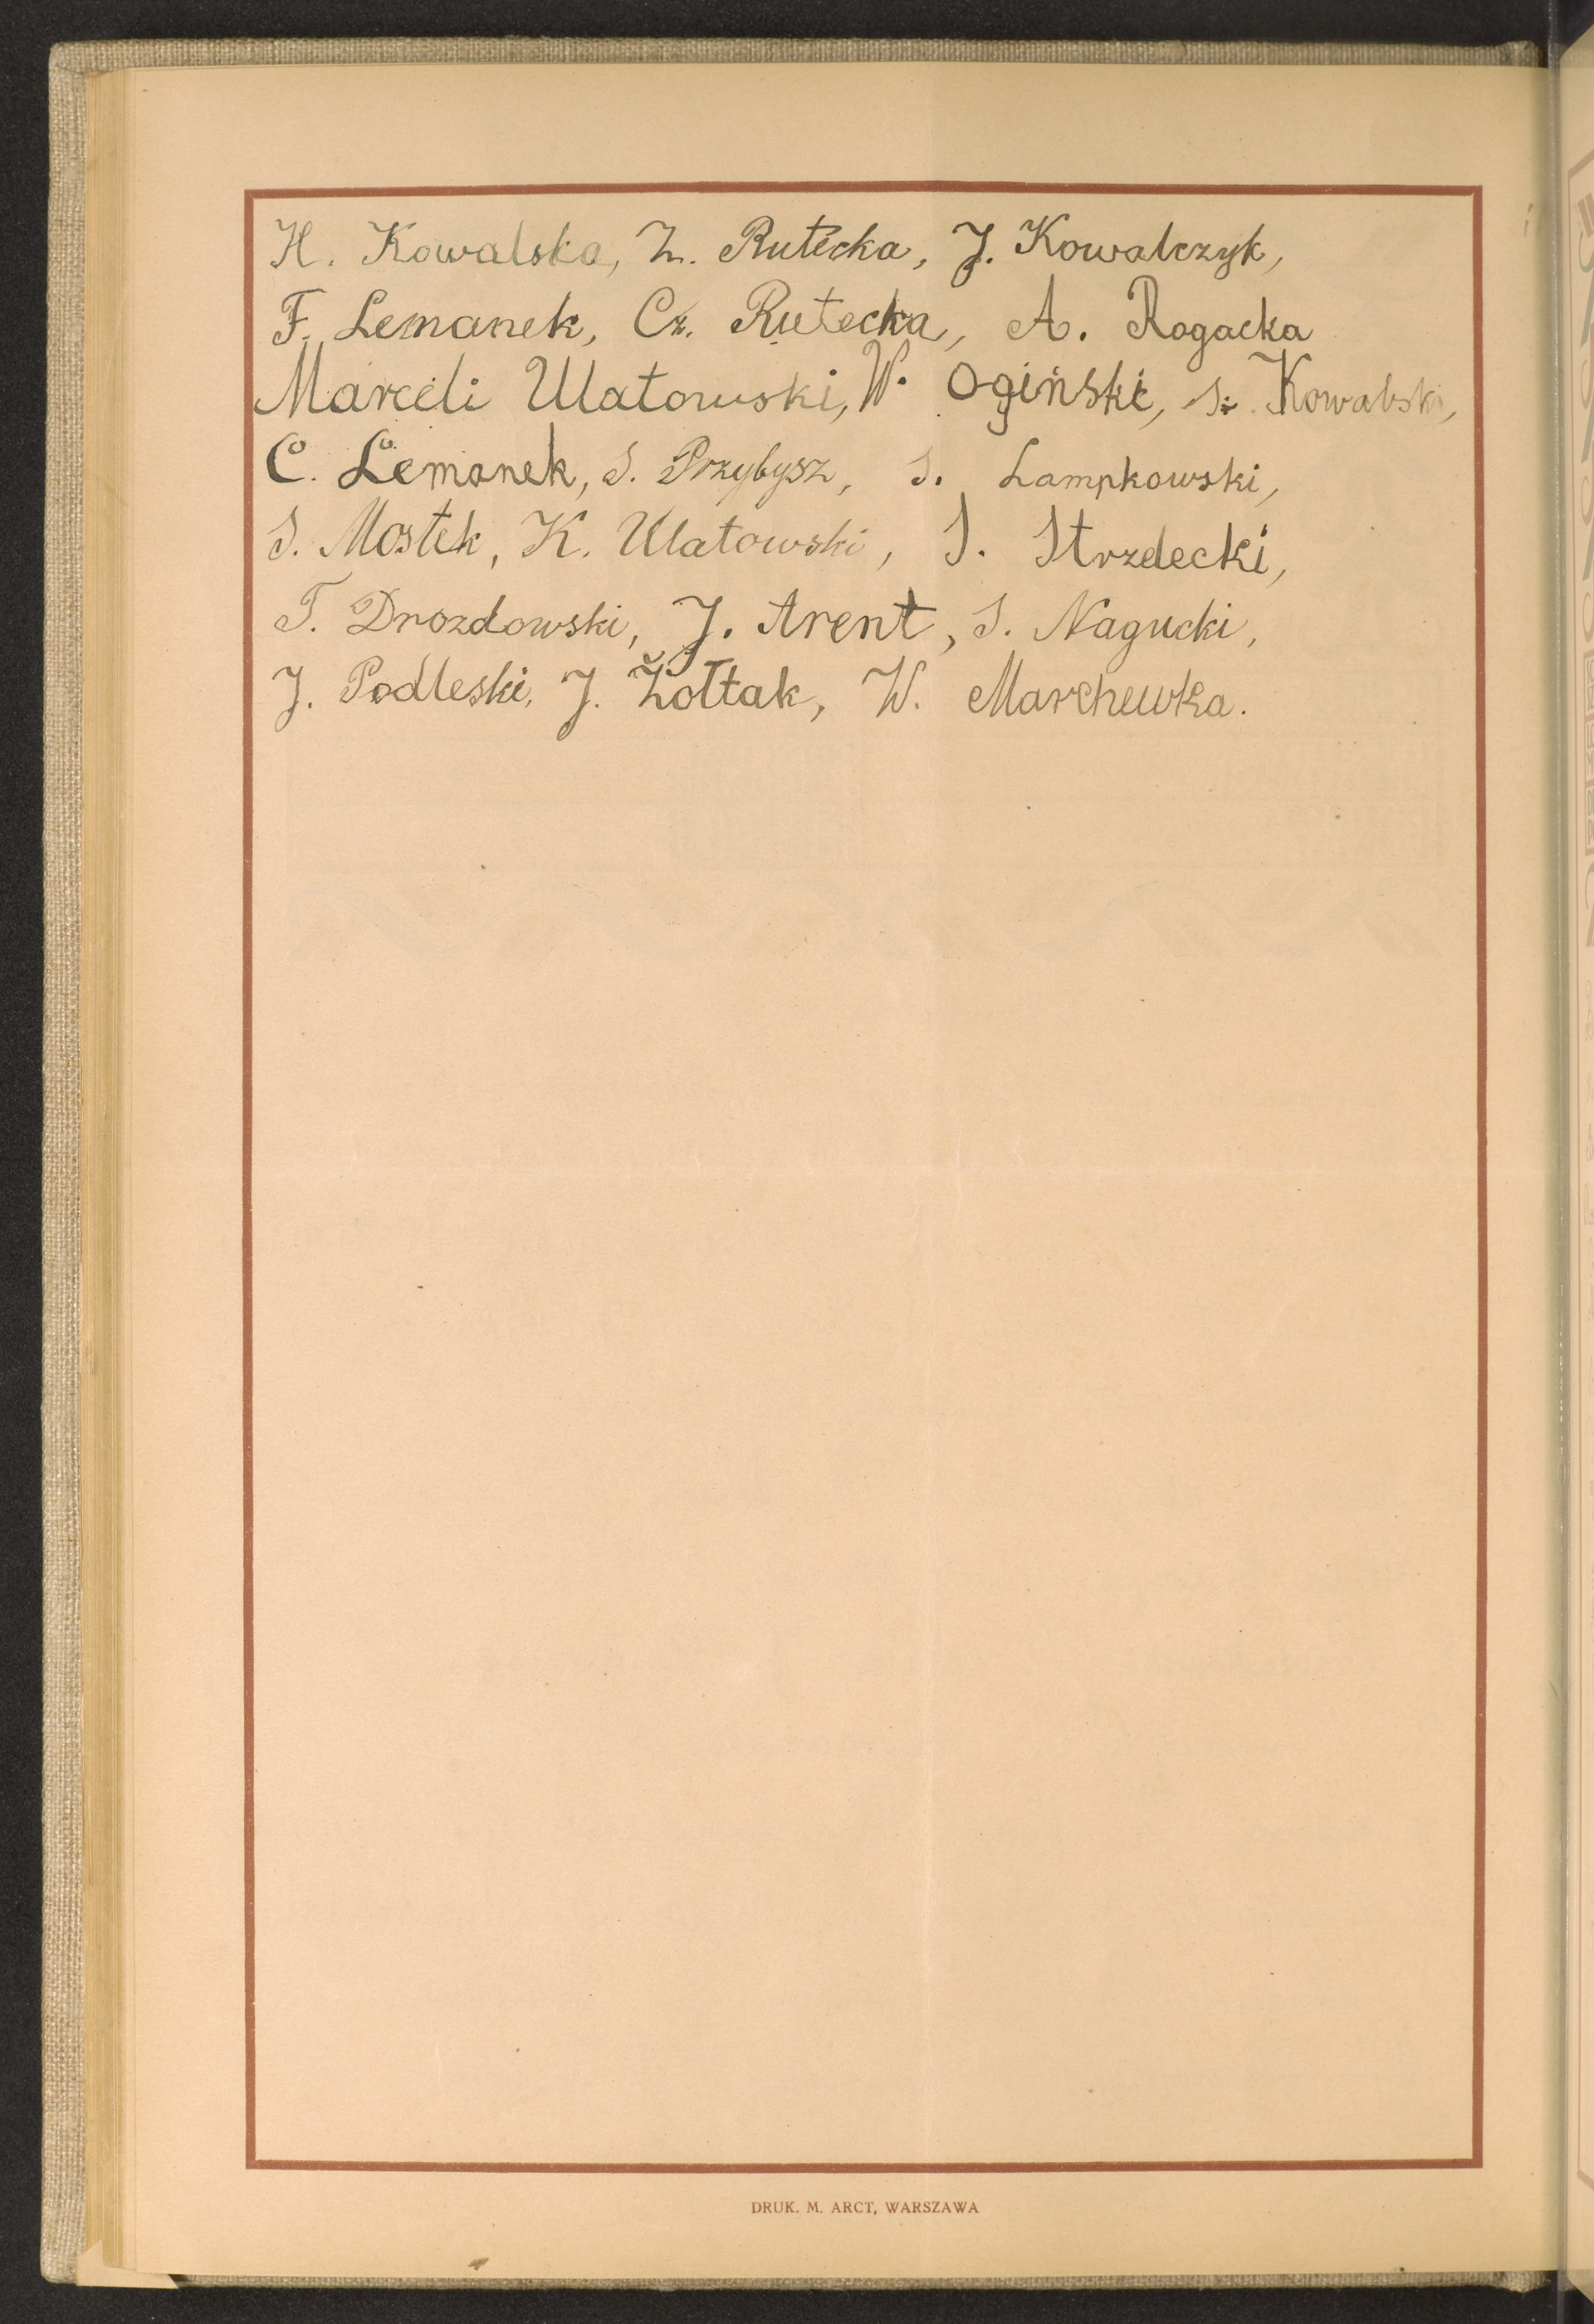 H. Kowalska, Z. Rutecka, J. Kowalczyk,
F. Lemanek, Cz. Rutecka, A. Rogacka
Marceli Ulatowski, W. Ogiński, S. Kowalski,
C. Lemanek, S. Przybysz, S. Lampkowski,
S. Mostek, K. Ulatowski, S. Strzdecki,
T. Drozdowski, J. Arent, S. Nagucki,
J. Podleski, J. Żołtak, W. Marchewka.
DRUK. M. ARCT, WARSZAWA